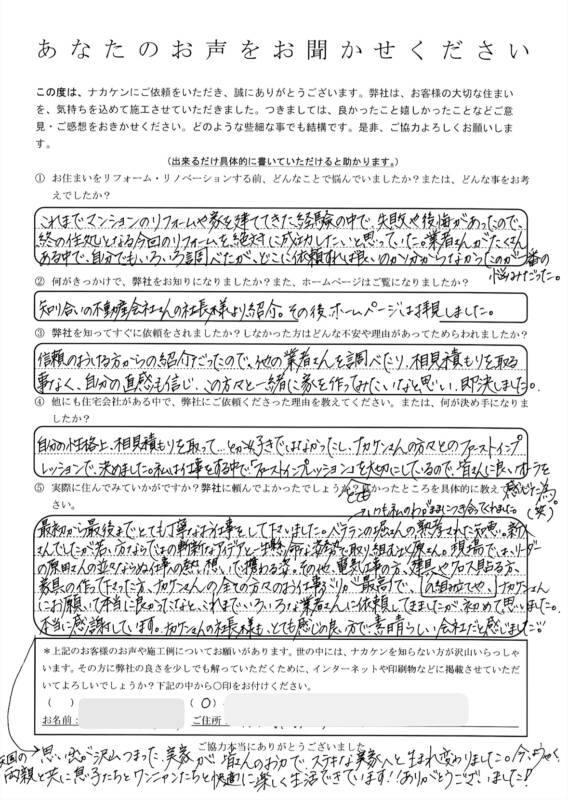 あなたのお声をお聞かせください
この度は、ナカケンにご依頼をいただき、誠にありがとうございます。弊社は、お客様の大切な住まい
を、気持ちを込めて施工させていただきました。つきましては、良かったこと嬉しかったことなどご意
見・ご感想をおきかせください。どのような些細な事でも結構です。是非、ご協力よろしくお願いしま
す。
(出来るだけ具体的に書いていただけると助かります。)
① お住まいをリフォーム・リノベーションする前、どんなことで悩んでいましたか?または、どんな事をお考
えでしたか?
これまでマンションのリフォームや家を建ててきた経験の中で、失敗や後悔があったので、
終の住処となる今回のリフォームを絶対に成功したいと思っていた。業者さんがたくさん
ある中で、自分でもいろいろ調べたが、どこに依頼すれば良いのか分からなかったのが一番の
悩みだった。
② 何がきっかけで、弊社をお知りになりましたか?また、ホームページはご覧になりましたか?
知り合いの不動産会社さんの社長様より紹介。その後、ホームページは拝見しました。
③ 弊社を知ってすぐに依頼をされましたか?しなかった方はどんな不安や理由があってためらわれましたか?
信頼のおける方からの紹介だったので、他の業者さんを調べたり、相見積もりを取る
事なく、自分の直感も信じ、この方々と一緒に家を作ってみたいなと思い、即決しました。
④ 他にも住宅会社がある中で、弊社にご依頼くださった理由を教えてください。または、何が決め手になりま
したか?
自分の性格上、相見積もりを取って…とかは好きではなかったし、ナカケンさんの方々とのファーストインプ
レッションで、決めました。私は仕事をする中で「ファーストインプレッション」を大切にしているので、皆さんに良いオーラを
感じた為。
(笑)
⑤ 実際に住んでみていかがですか?弊社に頼んでよかったでしょうか?良かったところを具体的に教えて
さい。
いつも私のわがままにつき合ってくれました
最初から最後まで、とても丁寧なお仕事をして下さいました。ベテランの堀さんの熟考された知恵。新人
さんでしたが若い方ならではの斬新なアイデアと一生懸命な姿勢で取り組む土原さん。現場では、リーダー
の原田さんの並々ならぬ仕事への熱い想いで携わる姿。その他、電気工事の方、建具やクロス貼る方、
家具の作って下さった方、ナカケンさんの全ての方々のお仕事ぶりが最高で、の組み立てや、ナカケンさん
にお願いして本当に良かったなと、これまでいろいろな業者さんに依頼してきましたが、初めて思いました。
本当に感謝しています。ナカケンさんの社長様も、とても感じの良い方で素晴らしい会社だと感じました!!
*上記のお客様のお声や施工例についてお願いがあります。世の中には、ナカケンを知らない方が沢山いらっしゃ
います。その方に弊社の良さを少しでも解っていただくために、インターネットや印刷物などに掲載させていただ
いてよろしいでしょうか?下記の中から〇印をお付けください。
( ) (〇)
お名前: ご住所:
ご協力本当にありがとうございました
思い出が沢山つまった実家が皆さんのおかげで、ステキな実家へと生まれ変わりました。今、ようやく
天国の両親と共に息子たちとワンニャンたちと快適に楽しく生活できています!!ありがとうございました!